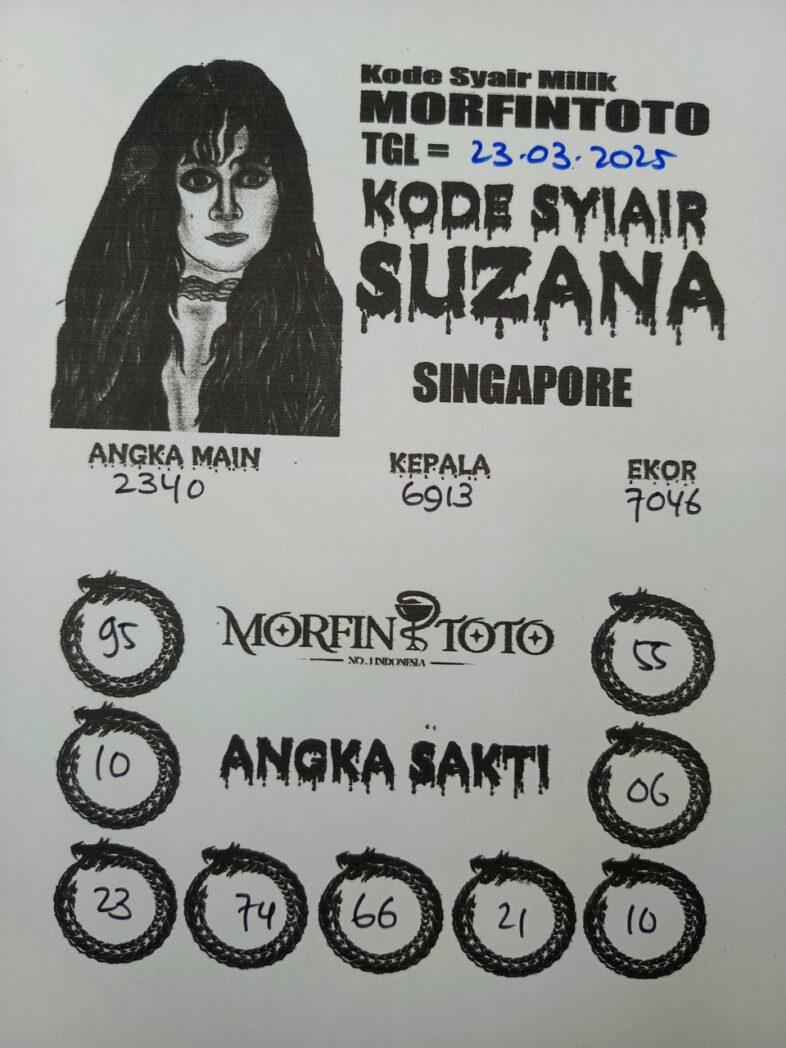 Kode Syair Milik
MORFINTOTO
TGL = 23.03.2025
KODE SYIAIR
SUZANA
SINGAPORE
ANGKA MAIN KEPALA EKOR
2340 6913 7046
95 MORFIN TOTO 55
NO.1 INDONESIA
10 ANGKA SAKTI 06
23 74 66 21 10